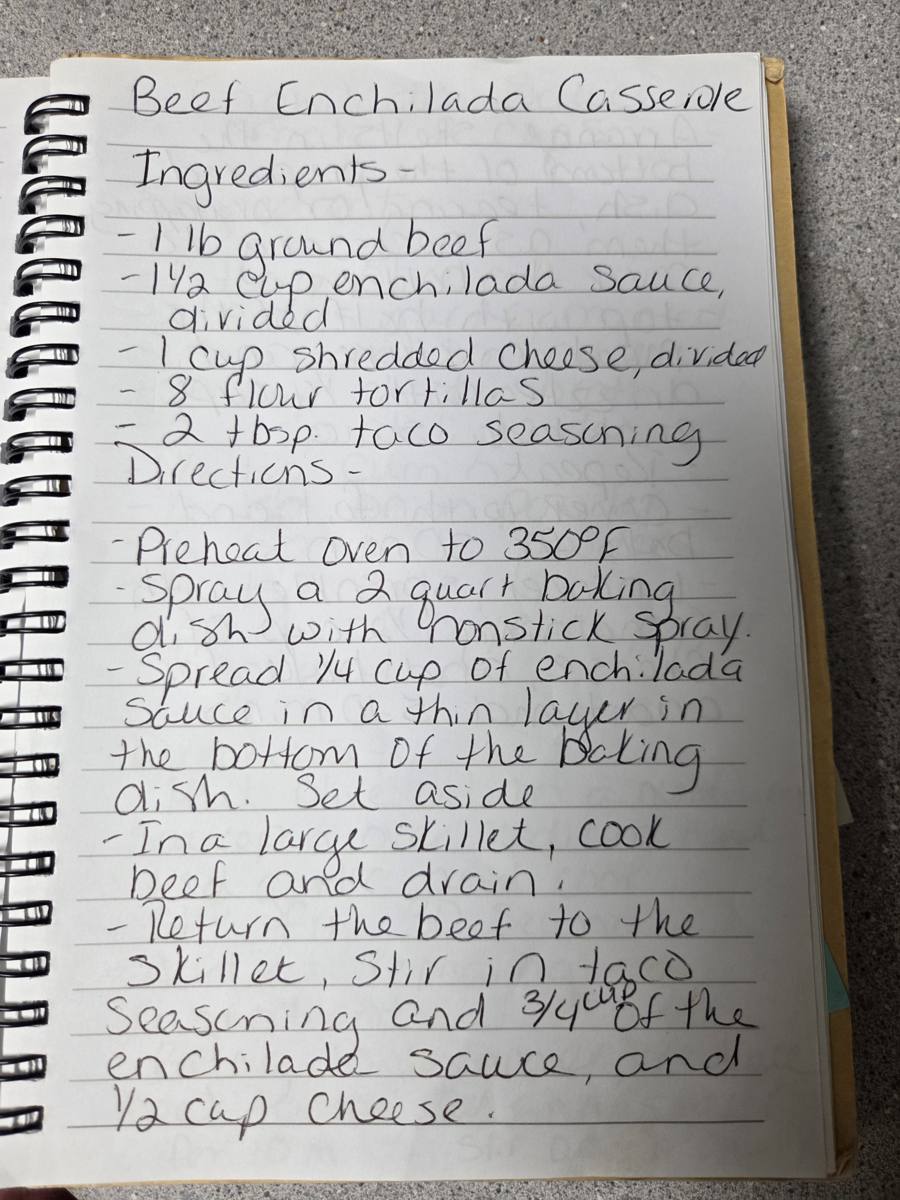 Beef Enchilada Casserole
Ingredients -
- 1 lb ground beef
- 1 1/2 cup enchilada sauce,
divided
- 1 cup shredded cheese, divided
- 8 flour tortillas
- 2 tbsp. taco seasoning
Directions -
- Preheat oven to 350°F
- Spray a 2 quart baking
dish with nonstick spray.
- Spread 1/4 cup of enchilada
sauce in a thin layer in
the bottom of the baking
dish. Set aside
- In a large skillet, cook
beef and drain.
- Return the beef to the
skillet, stir in taco
seasoning and 3/4 cup of the
enchilada sauce, and
1/2 cup cheese.